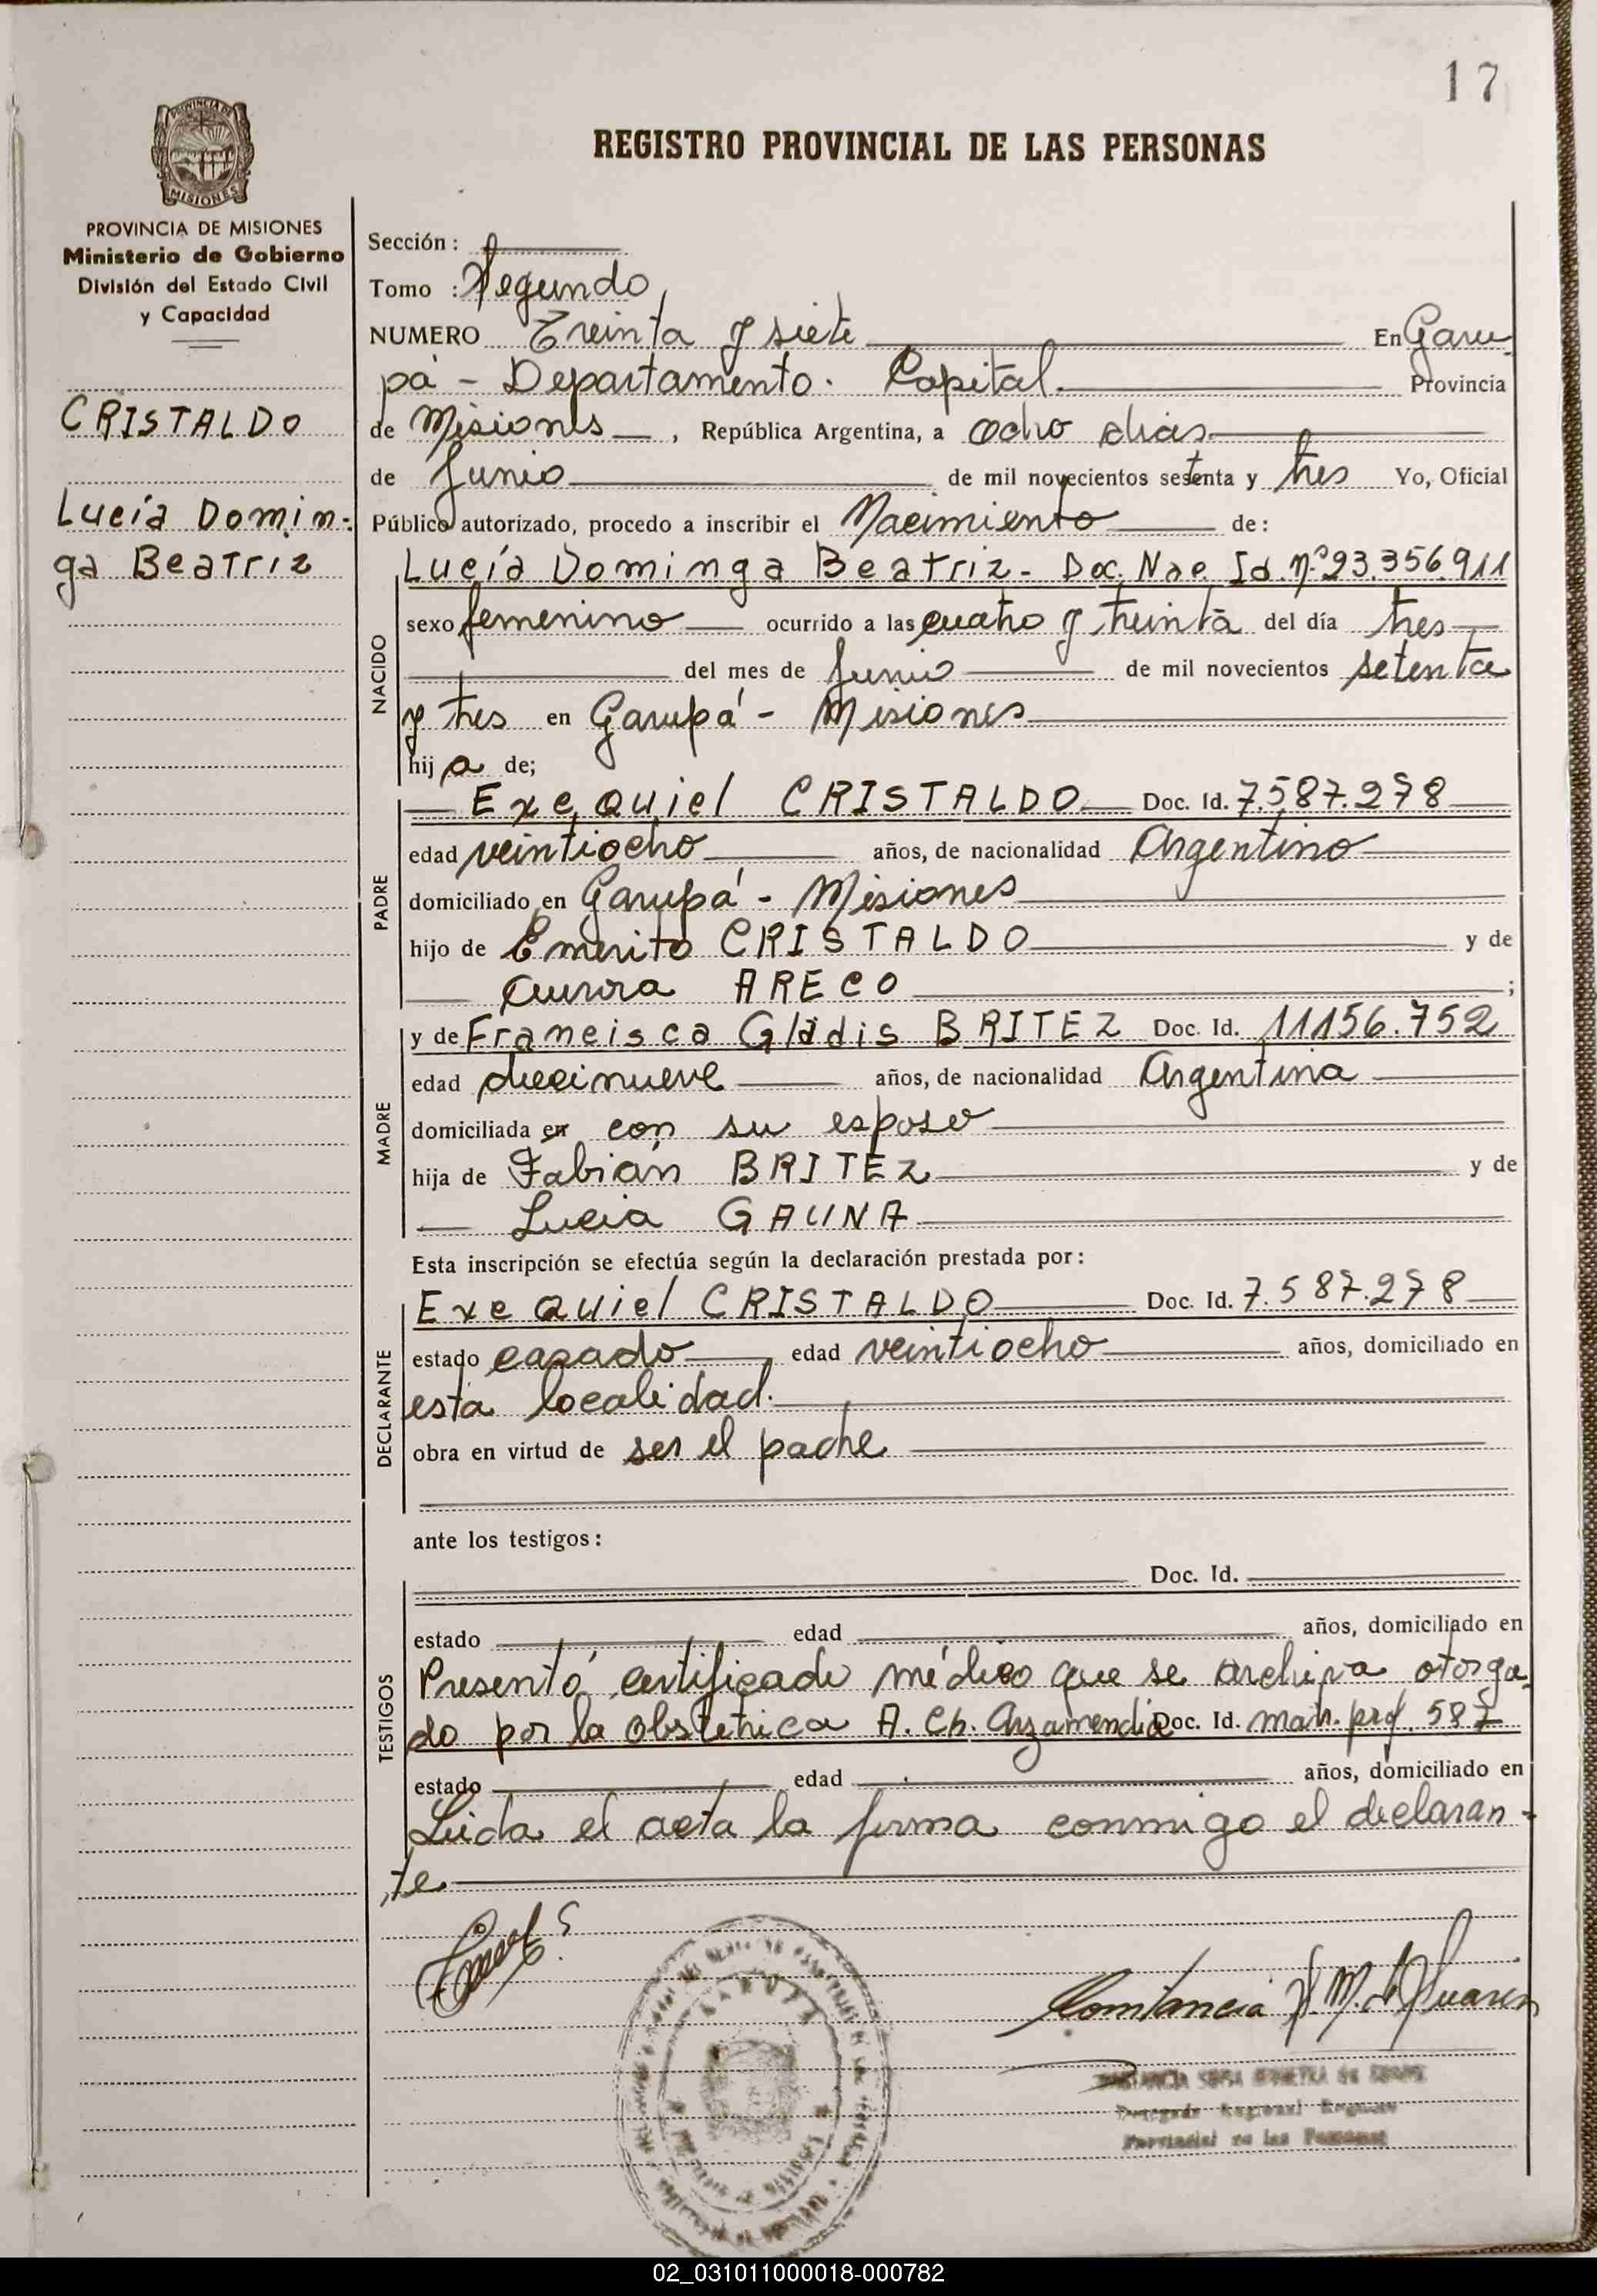 17
REGISTRO PROVINCIAL DE LAS PERSONAS
PROVINCIA DE
MISIONES
PROVINCIA DE MISIONES
Ministerio de Gobierno
División del Estado Civil
y Capacidad
CRISTALDO
Lucía Domin-
ga Beatriz
Sección:
Tomo : Segundo
NUMERO Treinta y siete En Garu
pá - Departamento. Capital. Provincia
de Misiones, República Argentina, a ocho dias
de Junio de mil novecientos setenta y tres Yo, Oficial
Público autorizado, procedo a inscribir el Nacimiento de:
NACIDO
Lucía Dominga Beatriz - Doc. Nac. Id. nº 23.356.911
sexo femenino ocurrido a las cuatro y treinta del día tres
del mes de Junio de mil novecientos setenta
y tres en Garupá - Misiones
hija de;
PADRE
Exequiel CRISTALDO Doc. Id. 7.587.278
edad veintiocho años, de nacionalidad Argentino
domiciliado en Garupá - Misiones
hijo de Emerito CRISTALDO y de
Aurora ARECO ;
MADRE
y de Francisca Gladis BRITEZ Doc. Id. 11156.752
edad diecinueve años, de nacionalidad Argentina
domiciliada en con su esposo
hija de Fabián BRITEZ y de
Lucia GAUNA
Esta inscripción se efectúa según la declaración prestada por:
DECLARANTE
Exequiel CRISTALDO Doc. Id. 7.587.278
estado casado edad veintiocho años, domiciliado en
esta localidad.
obra en virtud de ser el padre
ante los testigos:
TESTIGOS
Doc. Id.
estado edad años, domiciliado en
Presentó certificado médico que se archiva otorga
do por la obstetrica A. Ch. Arzamendia Doc. Id. matr. prof. 587
estado edad años, domiciliado en
Leida el acta la firma conmigo el declaran-
te
Constancia S. M. de Suarez
Provincial de las Personas
02_031011000018-000782